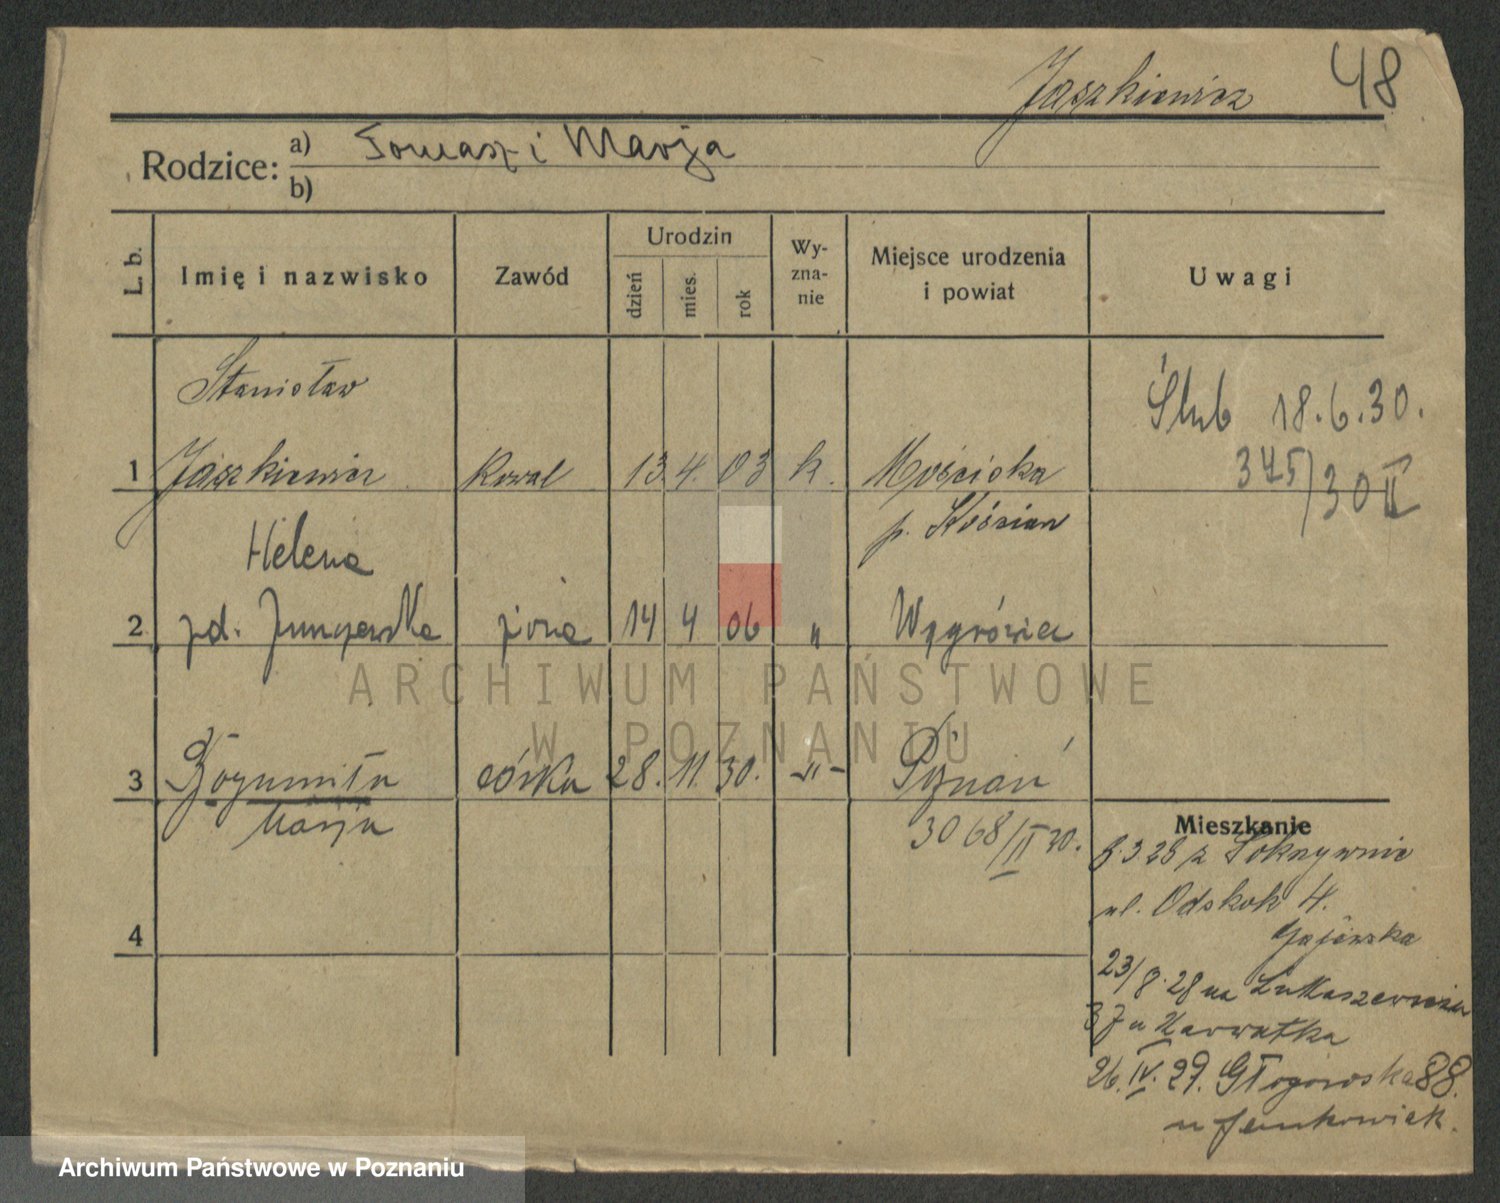 Jaszkiewicz 48
Rodzice: a) Tomasz i Marja
b)
L. b. Imię i nazwisko Zawód Urodzin dzień mies. rok Wy-zna-nie Miejsce urodzenia i powiat Uwagi
Stanisław
Ślub 18.6.30.
1 Jaszkiewicz Kowal 13. 4. 03 k. Mościska
345/30 II
p. Kościan
Helena
2 żona 14 4 06 " Wągrówiec
ARCHIWUM PAŃSTWOWE
W POZNANIU
3 Bogumiła córka 28. 11. 30. -"- Poznań
Marja 3068/II 30.
Mieszkanie
3 28 z
ul. Odskok 4.
4
Gajewska
23/8.28 na Łukaszewicza
37 u Karwatka
26.IV.29. Głogowska 88.
u Jankowiak.
Archiwum Państwowe w Poznaniu